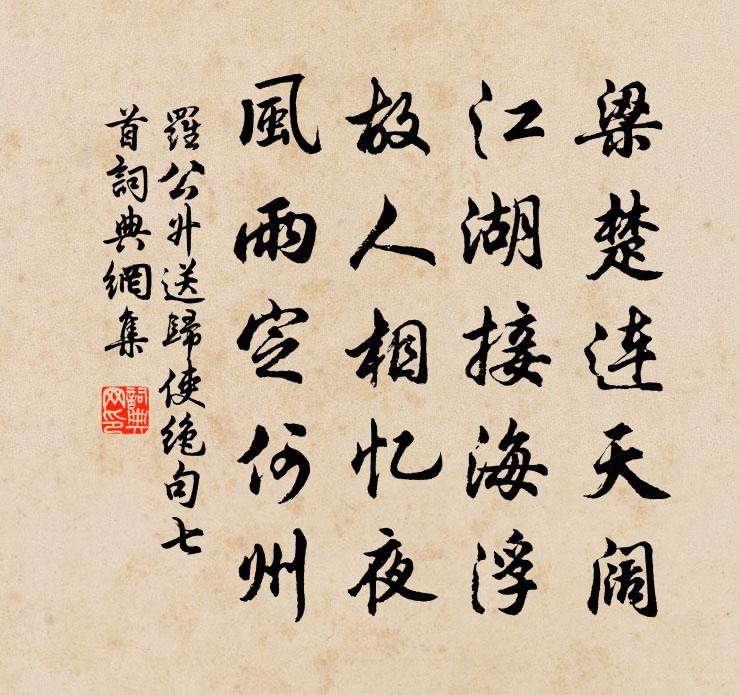 梁楚连天阔
江湖接海浮
故人相忆夜
風雨定何州
羅公升送歸使绝句七
首詞典網集
詞典网印